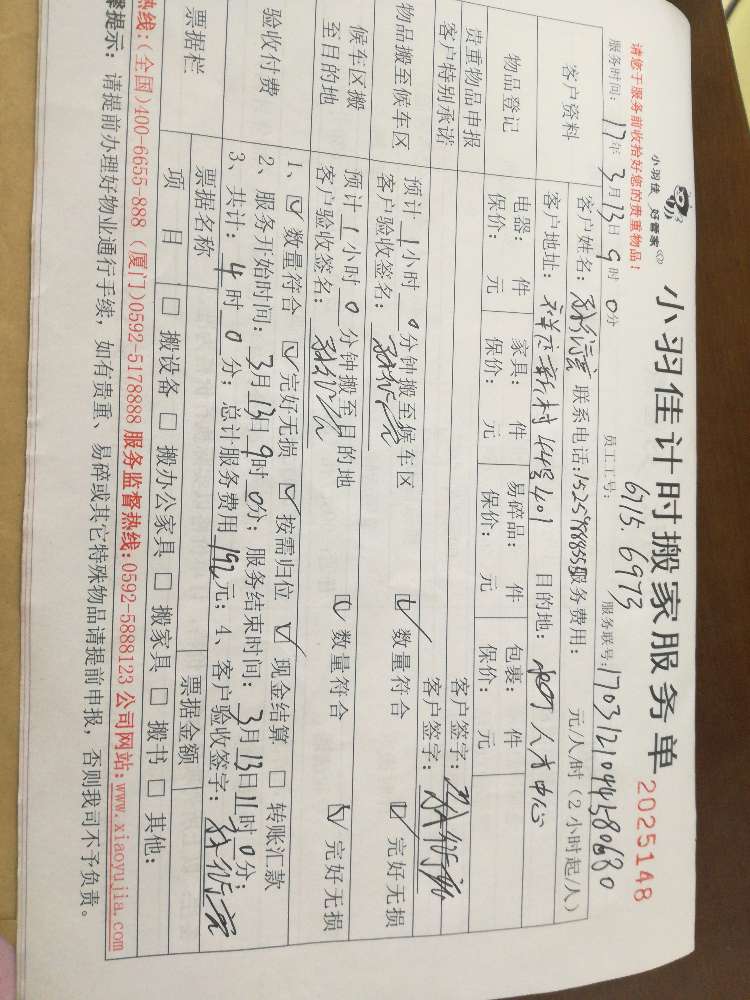 小羽佳 好管家
小羽佳计时搬家服务单
2025148
请您于服务前收拾好您的贵重物品！
员工工号：6715.6973
服务时间：17年3月13日9时0分
服务联号：17031210944580680
客户资料
客户姓名：
联系电话：
服务费用： 元/人/时（2小时起/人）
客户地址：祥店新村44号401
目的地：人才中心
物品登记
电器： 件 家具： 件 易碎品： 件 包裹： 件
保价： 元 保价： 元 保价： 元 保价： 元
贵重物品申报
客户签字：
客户特别承诺
客户签字：
物品搬至候车区
预计1小时0分钟搬至候车区 ☑数量符合 ☑完好无损
客户验收签名：
候车区搬至目的地
预计1小时0分钟搬至目的地 ☑数量符合 ☑完好无损
客户验收签名：
验收付费
1、☑数量符合 ☑完好无损 ☑按需归位 ☑现金结算 □转账汇款
2、服务开始时间：3月13日9时0分；服务结束时间：3月13日11时0分；
3、共计：4时0分；总计服务费用192元；4、客户验收签字：
票据栏
票据名称
票据金额
项 目
□搬设备 □搬办公家具 □搬家具 □搬书 □其他：
热线：（全国）400-6655-888（厦门）0592-5178888 服务监督热线：0592-5888123 公司网站：www.xiaoyujia.com
提示：请提前办理好物业通行手续，如有贵重、易碎或其它特殊物品请提前申报，否则我司不予负责。